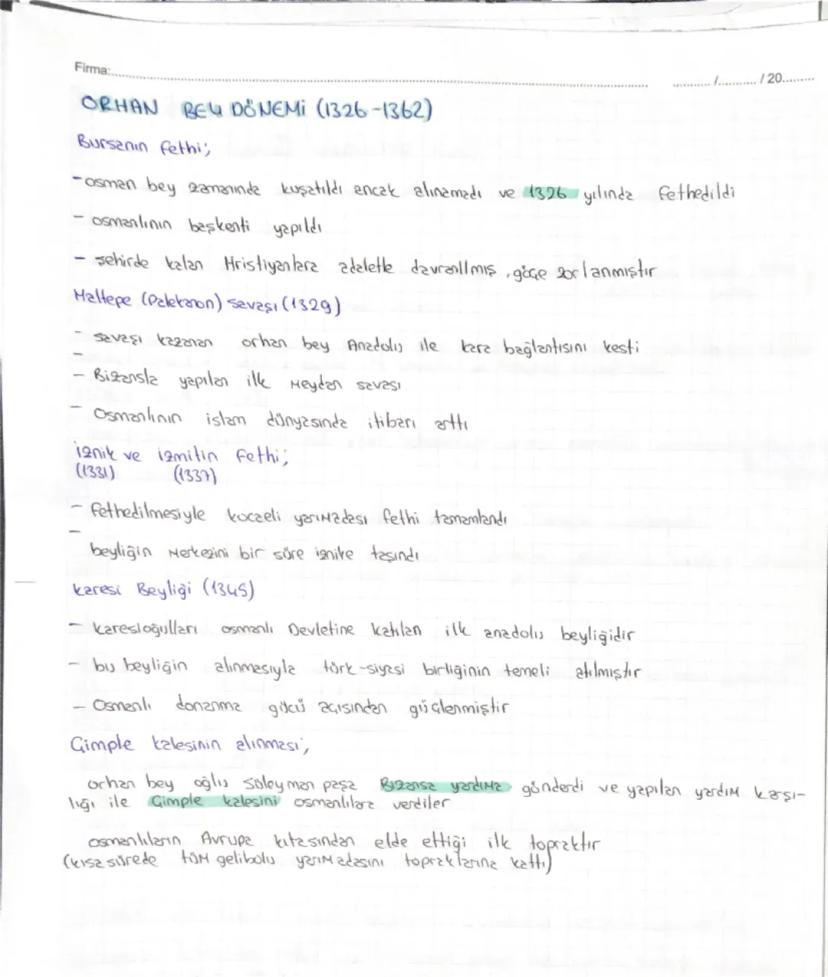 Firma:
/ / 20
ORHAN BEY DÖNEMİ (1326-1362)
Bursanın fethi;
- osman bey zamanında kuşatıldı ancak alınamadı ve 1326 yılında fethedildi
- osmanlının başkenti yapıldı
- şehirde kalan Hristiyanlara adaletle davranılmış, göçe zorlanmıştır
Maltepe (Palekanon) savaşı (1329)
- savaşı kazanan orhan bey Anadolu ile kara bağlantısını kesti
-
- Bizansla yapılan ilk Meydan savaşı
- Osmanlının islam dünyasında itibarı arttı
iznik ve izmitin fethi;
(1331) (1337)
- fethedilmesiyle kocaeli yarımadası fethi tamamlandı
-
beyliğin Merkezini bir süre iznike taşındı
karesi Beyliği (1345)
- karesioğulları osmanlı Devletine katılan ilk anadolu beyliğidir
- bu beyliğin alınmasıyla türk-siyasi birliğinin temeli atılmıştır
- Osmanlı donanma gücü açısından güçlenmiştir
Çimple kalesinin alınması;
orhan bey oğlu Süleyman paşa Bizansa yardıma gönderdi ve yapılan yardım karşı-
lığı ile Çimple kalesini osmanlılara verdiler
osmanlıların Avrupa kıtasından elde ettiği ilk topraktır
(kısa sürede tüm gelibolu yarımadasını topraklarına kattı)